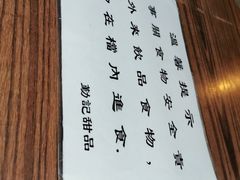 溫馨提示
事關食物安全責
外來飲品食物，
勿在檔內進食。
勤記甜品